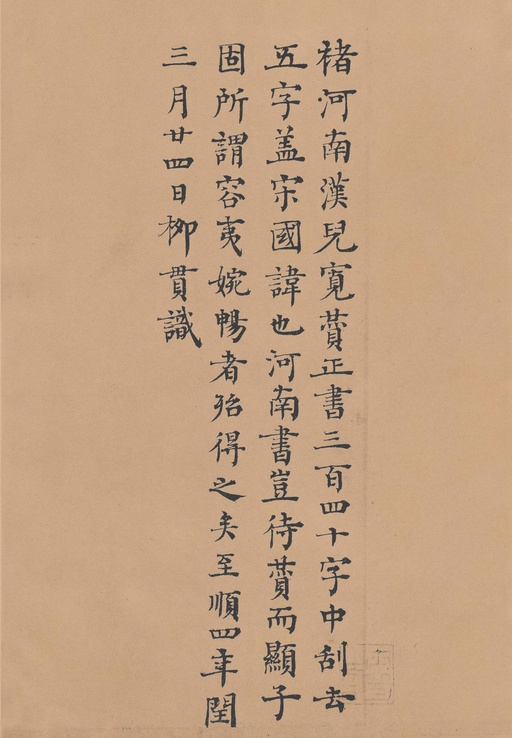 褚河南漢兒寬賛正書三百四十字中刮去
五字盖宋國諱也河南書豈待賛而顯子
固所謂容夷婉暢者殆得之矣至順四年閏
三月廿四日柳貫識